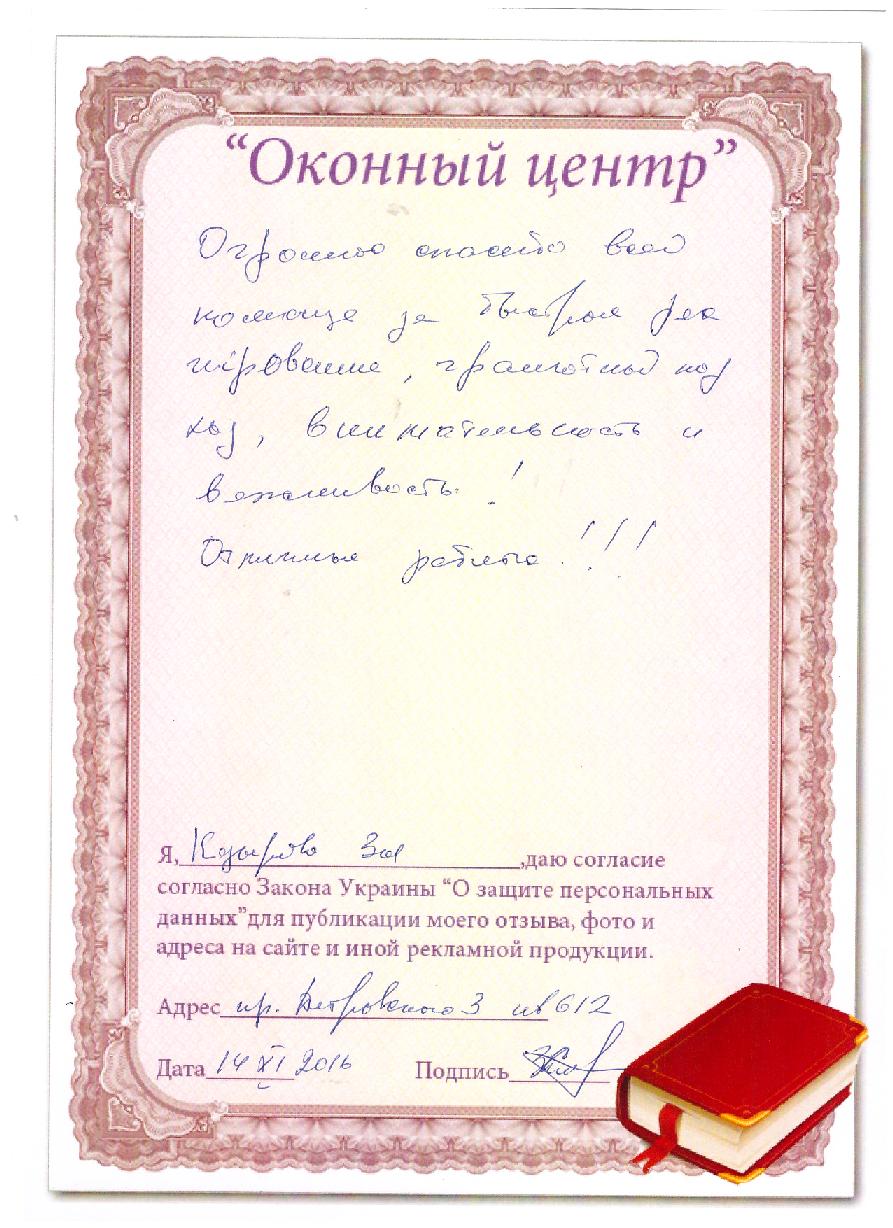 “Оконный центр”
Огромное спасибо всей
команде за быстрое реа
гирование, грамотный под
ход, внимательность и
вежливость!
Отличная работа!!!
Я, Зоя ,даю согласие
согласно Закона Украины “О защите персональных
данных”для публикации моего отзыва, фото и
адреса на сайте и иной рекламной продукции.
Адрес пр. Петровского 3 кв 612
Дата 14 XI 2016 Подпись